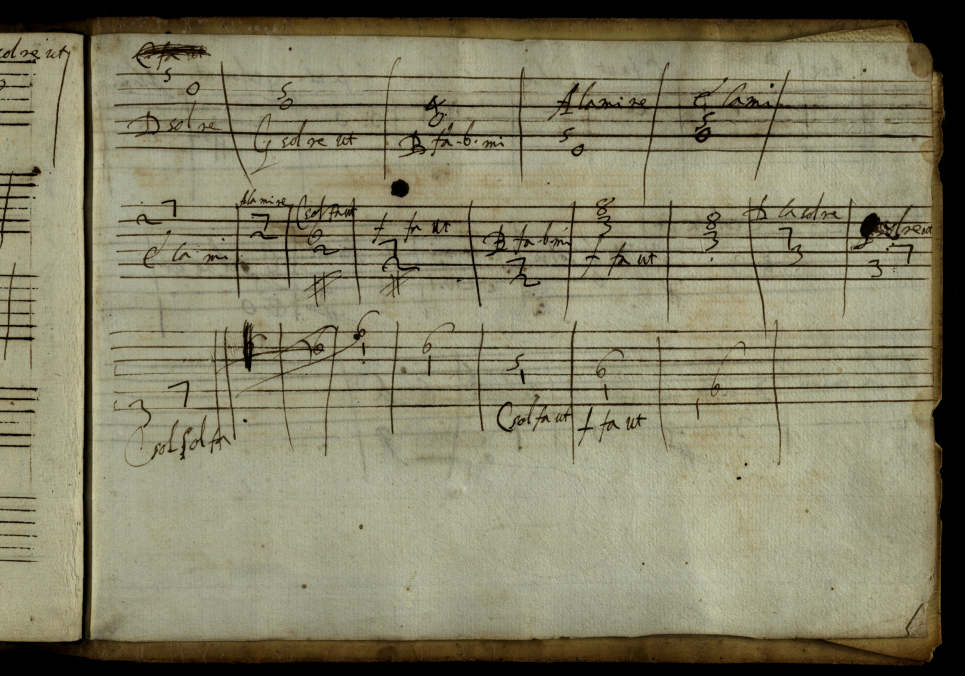 sol re ut
C fa ut
5 5 8 A la mi re E la mi
0 0 5 5 0
D sol re G sol re ut B fa-b-mi 0
A la mi re C sol fa ut 8 D la sol re
7 7 6 f fa ut B fa-b-mi 3 8 7 sol re ut
2 2 2 7 7 f fa ut 3 3 7
E la mi 2 2 3
6 6 6 5 6 6
1 1 1 1 1
7
3 C sol fa ut f fa ut
C sol sol fa